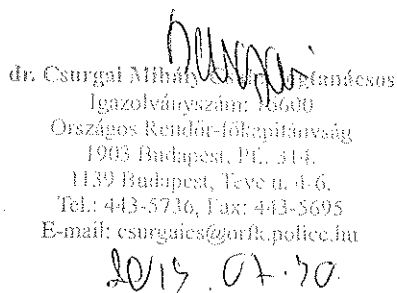 dr. Csurgai Mihály
Igazolványszám: 16600
Országos Rendőr-főkapitányság
1903 Budapest, Pf.: 314.
1139 Budapest, Teve u. 4-6.
Tel.: 443-5736, Fax: 443-5695
E-mail: csurgaics@orfk.police.hu